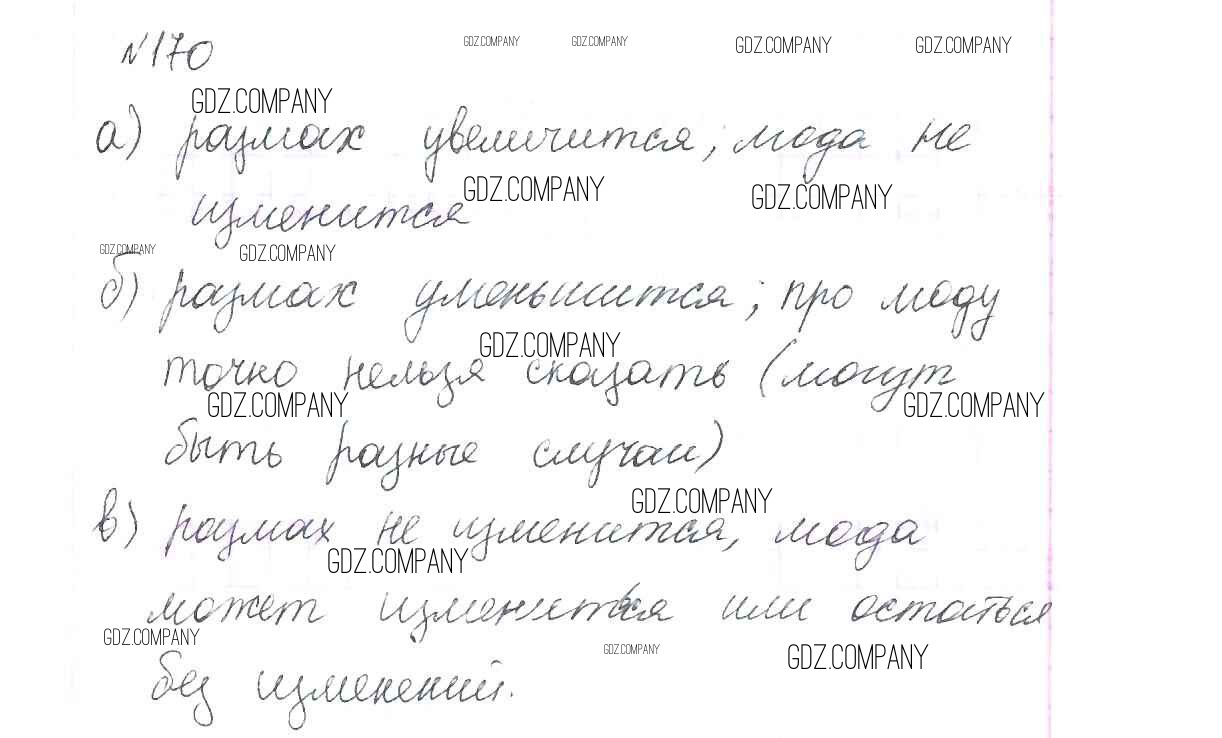 №170
GDZ.COMPANY GDZ.COMPANY GDZ.COMPANY GDZ.COMPANY
GDZ.COMPANY
а) размах увеличится; мода не
GDZ.COMPANY GDZ.COMPANY
изменится
GDZ.COMPANY GDZ.COMPANY
б) размах уменьшится; про моду
GDZ.COMPANY
точно нельзя сказать (могут
GDZ.COMPANY GDZ.COMPANY
быть разные случаи)
GDZ.COMPANY
в) размах не изменится, мода
GDZ.COMPANY
может измениться или остаться
GDZ.COMPANY GDZ.COMPANY GDZ.COMPANY
без изменений.